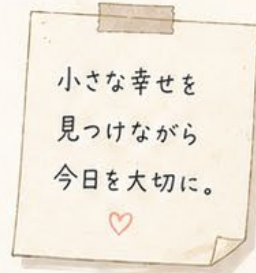 小さな幸せを
見つけながら
今日を大切に。